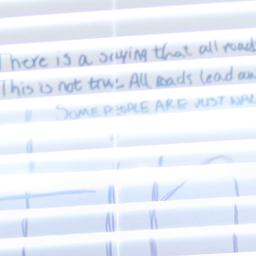 There is a saying that all roads
This is not true. All roads lead
SOME PEOPLE ARE JUST